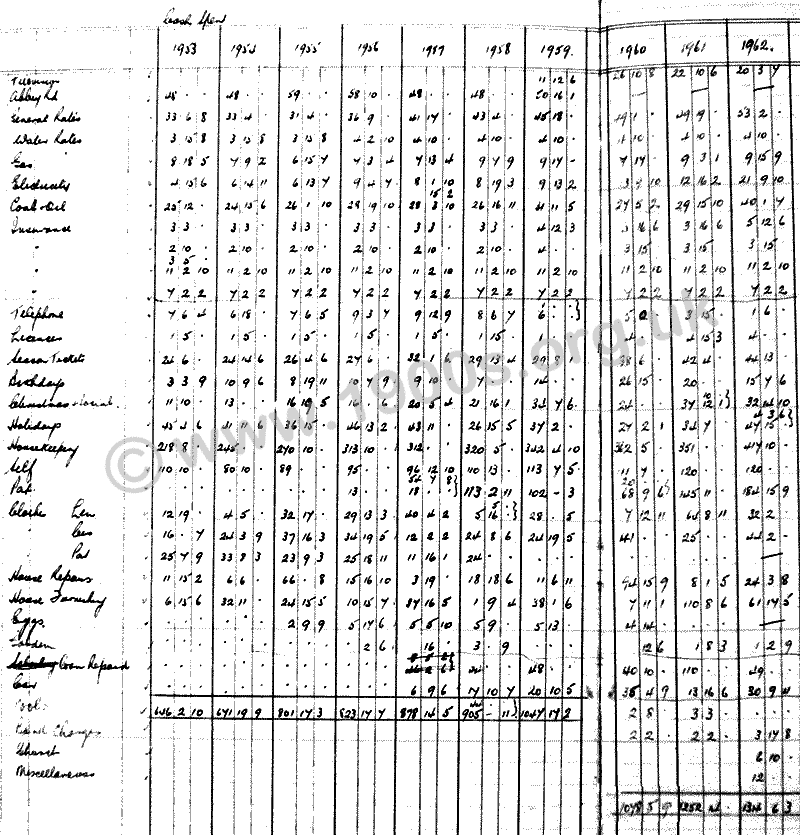 Cash Spent
1953 1954 1955 1956 1957 1958 1959. 1960 1961 1962.
Television 11 12 6 26 10 8 22 10 6 20 3 7
Abbey Rd 48 . . 48 . . 59 . . 58 10 . 48 . . 48 . . 50 16 1 — — —
General Rates 33 6 8 33 4 . 31 4 . 36 9 . 41 14 . 43 4 . 45 18 . 49 1 . 49 9 . 53 2 .
Water Rates 3 15 8 3 15 8 3 15 8 4 2 10 4 10 . 4 10 . 4 10 . 4 10 . 4 10 . 4 10 .
Gas 8 18 5 7 9 2 6 15 7 7 3 4 7 13 4 9 7 9 9 17 . 7 17 . 9 3 1 9 15 9
Electricity 4 15 6 6 14 11 6 13 7 9 4 7 8 1 10 8 19 3 9 13 2 12 16 2 21 9 10
Coal & Oil 25 12 . 24 15 6 26 1 10 28 19 10 28 3 10 26 16 11 27 5 2 29 15 10 40 1 7
Insurance 3 3 . 3 3 . 3 3 . 3 3 . 3 3 . 3 3 . 4 12 3 3 16 6 3 16 6 5 12 6
" 2 10 . 2 10 . 2 10 . 2 10 . 2 10 . 2 10 . 4 . . 3 15 . 3 15 . 3 15 .
3 5 .
" 11 2 10 11 2 10 11 2 10 11 2 10 11 2 10 11 2 10 11 2 10 11 2 10 11 2 10 11 2 10
" 7 2 2 7 2 2 7 2 2 7 2 2 7 2 2 7 2 2 7 2 2 7 2 2 7 2 2 7 2 2
Telephone 7 6 4 6 18 . 7 6 5 9 3 7 9 12 9 8 6 7 6 3 15 . 1 6
Licences 1 5 . 1 5 . 1 5 . 1 5 . 1 5 . 1 15 . 4 15 3 4 . .
Season Tickets 24 6 . 24 14 6 26 4 6 27 6 . 32 1 6 29 13 4 29 8 1 38 6 42 4 . 44 13 .
Birthdays 3 3 9 10 9 6 8 19 11 10 7 9 9 10 . 7 . . 14 . . 26 15 . 20 . . 15 7 6
Christmas & Social 11 10 . 13 . . 16 19 5 16 . 6 20 5 4 21 16 1 34 7 6 24 . .
Holidays 45 4 6 41 11 6 36 15 . 46 13 2 43 11 . 26 15 5 37 2 . 27 2 1 34 7 . 47 15 .
Housekeeping 218 8 245 270 10 . 313 10 312 . . 320 5 . 342 4 10 362 5 351 . 417 10
Self 110 10 80 10 . 89 . . 95 . . 96 12 10 110 13 . 113 7 5 11 7 . 120 . . 120 . .
Pat . . . . . . . . . 13 . . 18 . . 113 2 11 102 - 3 68 9 6 145 11 . 184 15 9
Clothes Len 12 19 . 4 5 . 32 17 . 29 13 3 40 4 2 5 16 . 28 . 5 7 12 11 64 8 11 32 2 .
" Ces 16 . 7 24 3 9 37 16 3 34 19 5 12 2 2 24 8 6 24 19 5 41 . . 25 . . 44 2 .
" Pat 25 7 9 33 8 3 23 9 3 25 18 11 11 16 1 24 . . —
House Repairs 11 15 2 6 6 . 66 . 8 15 16 10 3 19 . 18 18 6 11 6 11 94 15 9 8 1 5 24 3 8
House Furnishing 6 15 6 32 11 . 24 15 5 10 15 7 37 16 5 1 9 4 38 1 6 7 11 1 110 8 6 61 17 5
Eggs . . . . . . 2 9 9 5 17 6 5 5 10 5 9 . 5 13 . 4 14 . —
Garden 2 6 16 . 3 . 9 12 6 1 8 3 1 2 9
Loan Repaid 48 . . 40 10 . 110 . . 49 . .
Car 6 9 6 17 10 7 20 10 5 35 4 9 13 16 6 30 9 4
Pools 646 2 10 671 19 9 801 17 3 823 17 7 878 14 5 905 - 11 1047 17 2 2 8 . 3 3 .
Bank Charges 2 2 . 2 2 . 3 17 8
6 10
Miscellaneous 12 . .
1078 5 9 1252 14 . 1314 6 3
© www.1900s.org.uk